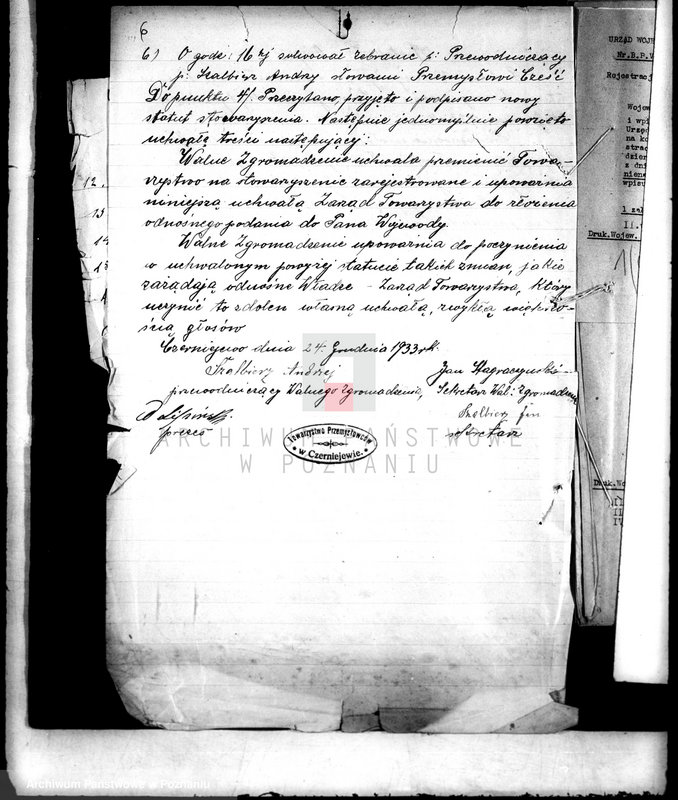 6
6) O godz: 16tej solwował zebranie p: Przewodniczący
p: Szalbierz Andrzej słowami Przemysłowi Cześć
Do punktu 4/. Przeczytano, przyjęto i podpisano nowy
statut stowarzyszenia. Następnie jednomyślnie powzięto
uchwałę treści następujący:
Walne Zgromadzenie uchwala przemienić Towa-
rzystwo na stowarzyszenie zarejestrowane i upoważnia
niniejszą uchwałą Zarząd Towarzystwa do złożenia
odnośnego podania do Pana Wojewody.
Walne Zgromadzenie upoważnia do poczynienia
w uchwalonym powyżej statucie takich zmian, jakie
zarządają odnośne Władze - Zarząd Towarzystwa, który
uczynić to zdolen własną uchwałą, zwykłą większo-
ścią głosów
Czerniejewo dnia 24. Grudnia 1933 rk.
Szalbierz Andrzej
przewodniczący Walnego Zgromadzenia,
Jan
Sekretarz Wal: Zgromadzenia
prezes
Szalbierz Jan
sekretarz
Towarzystwo Przemysłowców
w Czerniejewie.
ARCHIWUM PAŃSTWOWE
W POZNANIU
12.
13
14
15
URZĄD WOJE
Nr.B.P.V
Rejestracj
Wojew
i wpi
Urzęd
na ko
strac
dzien
z dni
wpisu
1 zał
Druk.Wojew.
Druk.Wo
Archiwum Państwowe w Poznaniu